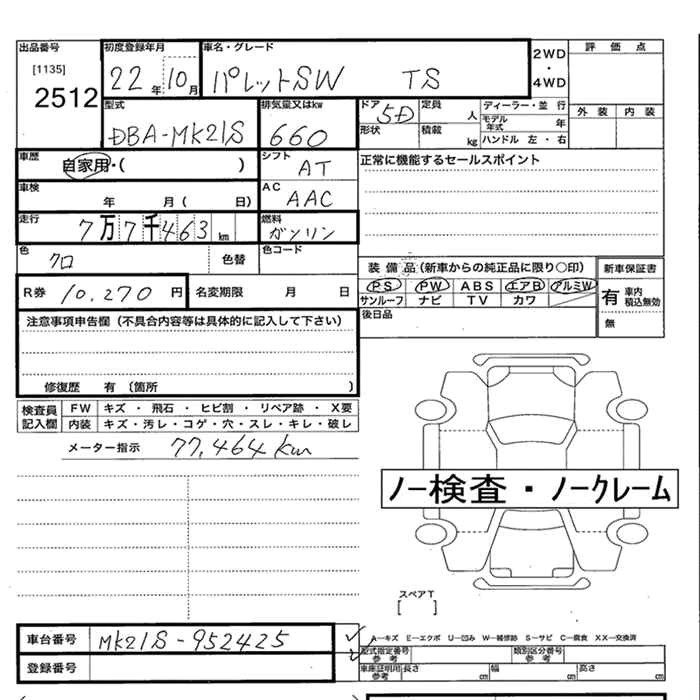 出品番号 初度登録年月 車名・グレード 評価点
[1135] 2512 22年10月 パレットSW TS 2WD・4WD 外装 内装
型式 排気量又はkw ドア 5D 定員 人 ディーラー・並行
DBA-MK21S 660 形状 積載 kg モデル年式 年 ハンドル 左・右
車歴 自家用・( ) シフト AT 正常に機能するセールスポイント
車検 年 月( 日) AC AAC
走行 7万7千463km 燃料 ガソリン
色 クロ 色替 色コード 装備品(新車からの純正品に限り○印) 新車保証書
R券 10,270円 名変期限 月 日 PS PW ABS エアB アルミW 有 車内積込無効
サンルーフ ナビ TV カワ 無
注意事項申告欄(不具合内容等は具体的に記入して下さい) 後日品
修復歴 有(箇所 )
検査員記入欄 FW キズ・飛石・ヒビ割・リペア跡・X要
内装 キズ・汚レ・コゲ・穴・スレ・キレ・破レ
メーター指示 77,464km
ノー検査・ノークレーム
スペアT
[ ]
車台番号 MK21S-952425 A-キズ E-エクボ U-凹み W-補修跡 S-サビ C-腐食 XX-交換済
登録番号 型式指定番号 参考 類別区分番号 参考
車庫証明用参考 長さ cm 幅 cm 高さ cm